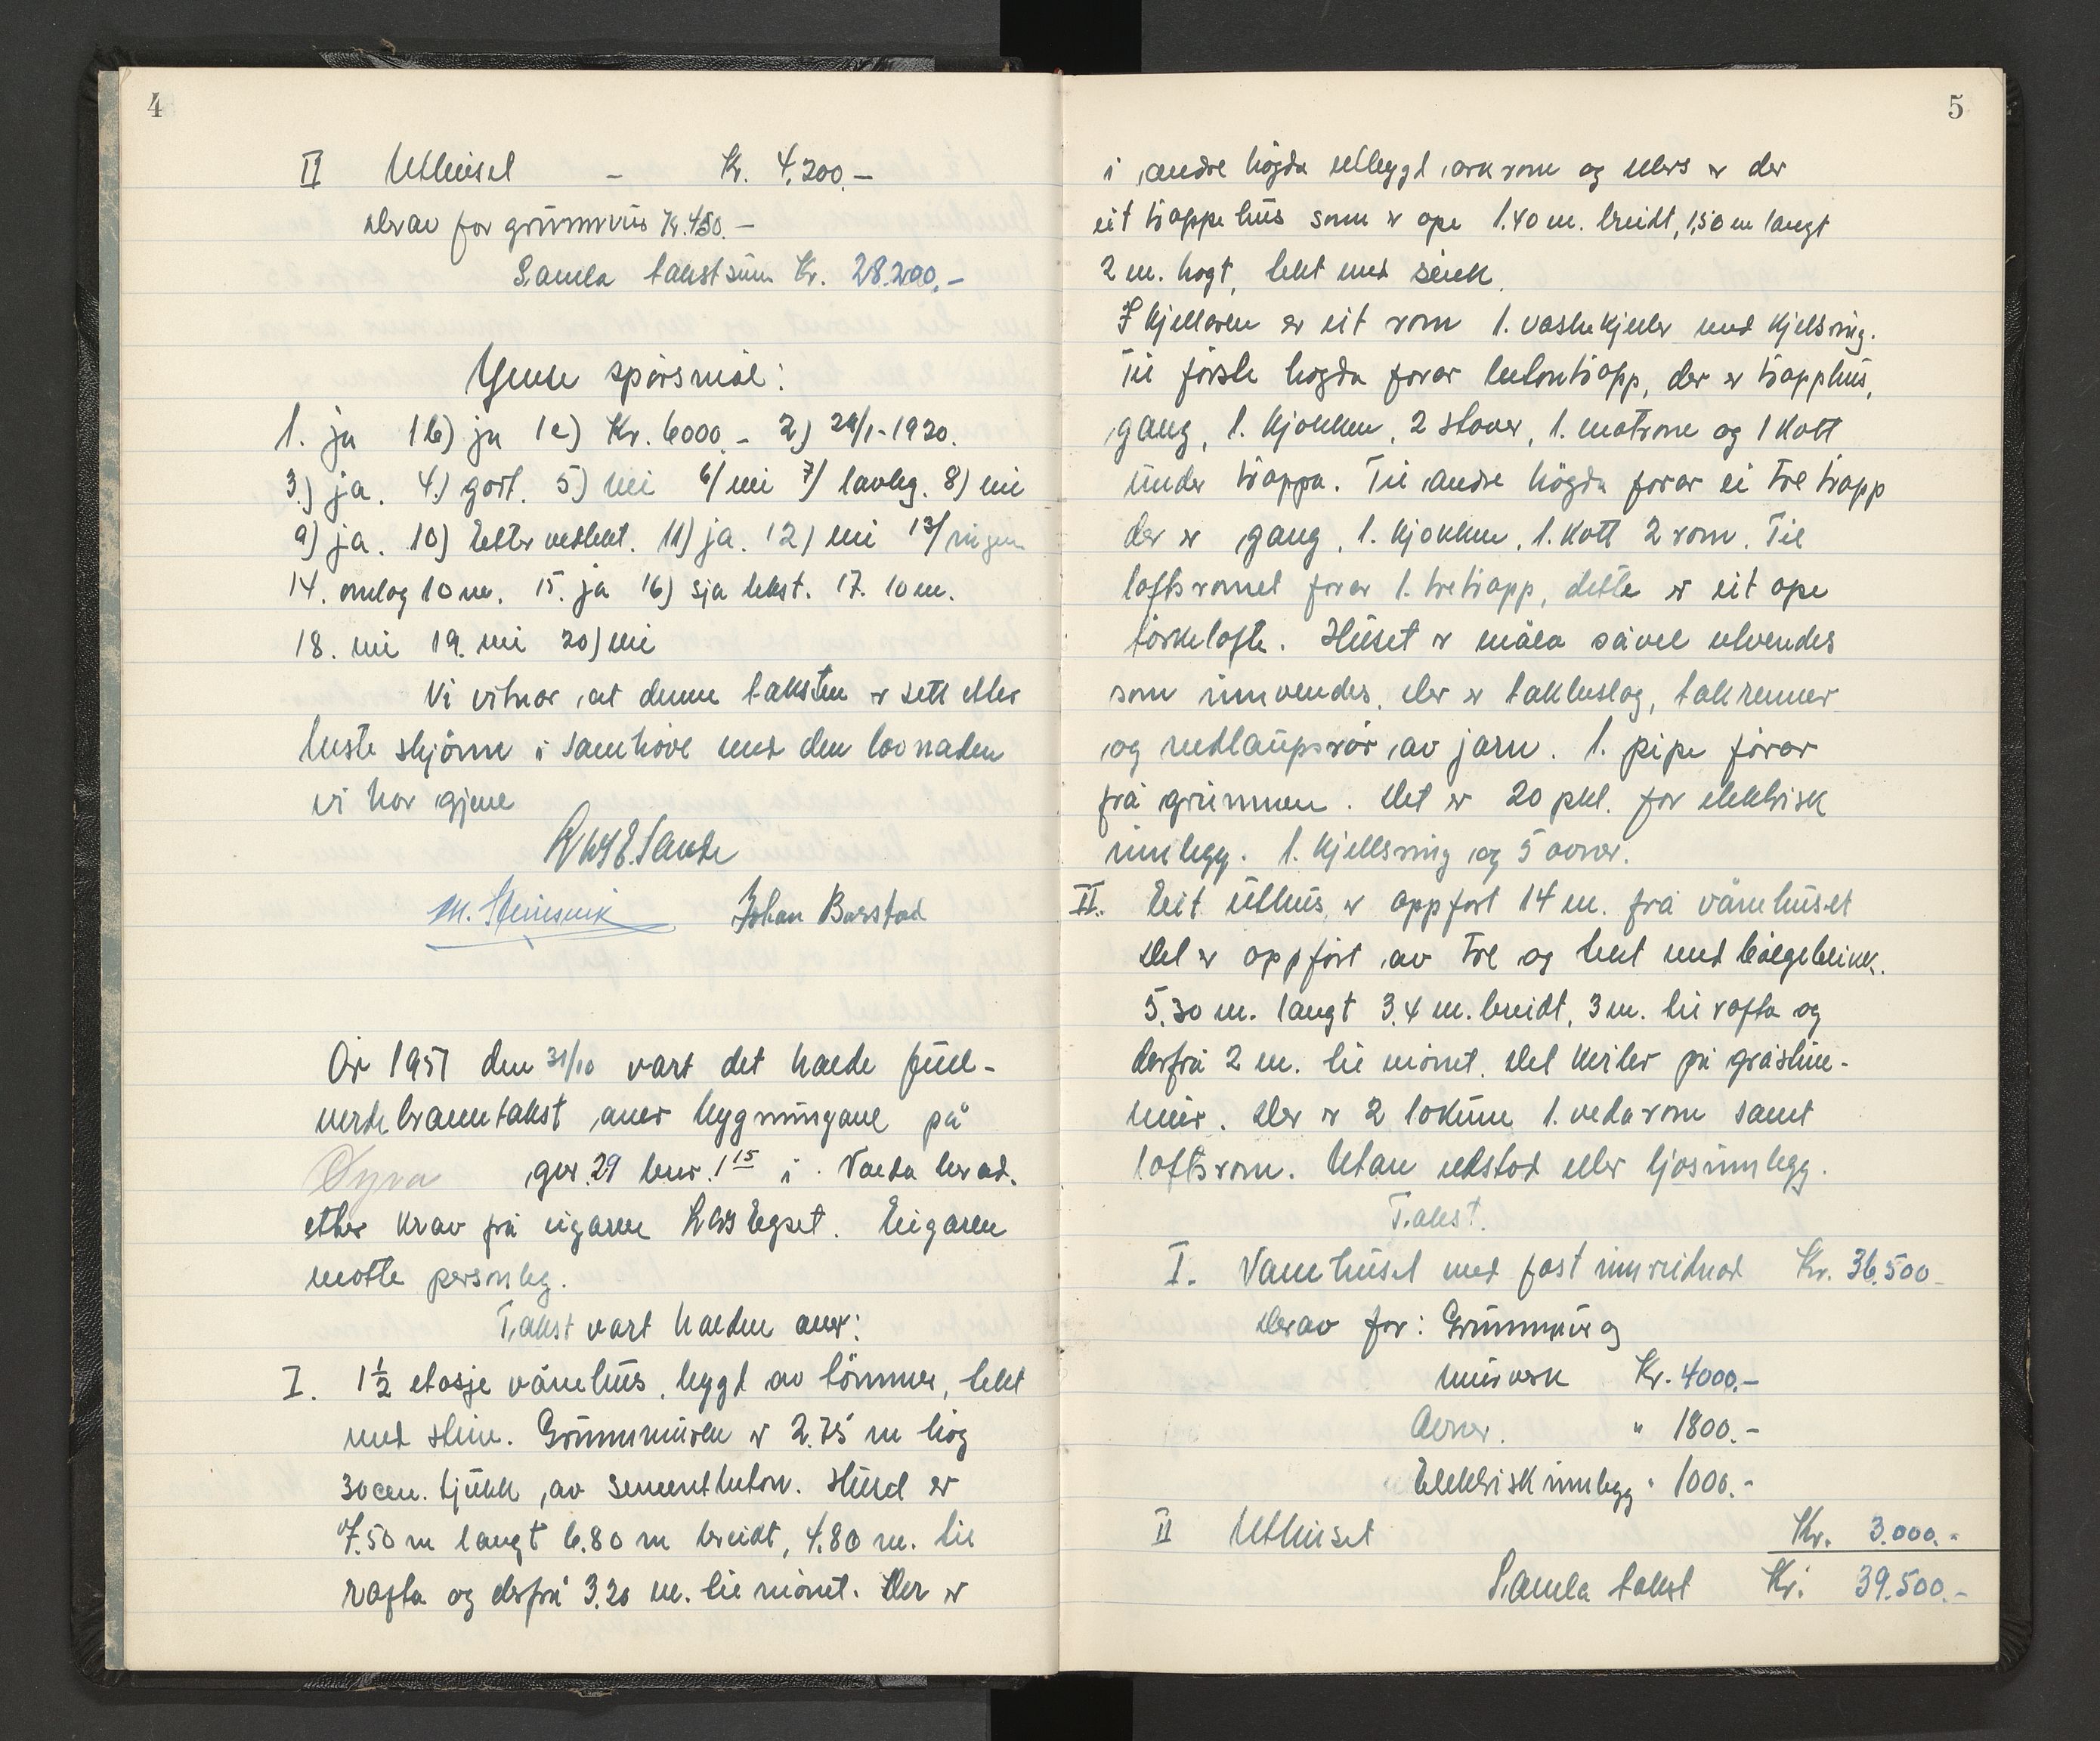 4
II Uthuset - Kr. 4.200.-
Derav for grunnmur Kr. 450.-
Samla takstsum Kr. 28.200.-
Ymse spørsmål:
1. ja 1b) ja 1c) Kr. 6000.- 2) 29/1-1920.
3.) ja. 4.) godt. 5) nei 6/ nei 7/ lavleg. 8) nei
9) ja. 10) Etter vedtekt. 11) ja. 12) nei 13/ ingen
14. omlag 10 m. 15. ja 16) sjå tekst. 17. 10 m.
18. nei 19. nei 20) nei
Vi vitnar at denne taksten er sett etter
beste skjønn i samhøve med den lovnaden
vi har gjeve
E. Sande
M. Steinsvik Johan Barstad
År 1951 den 31/10 vart det halde full-
verde branntakst over bygningane på
Øyra gnr. 29 bnr. 115 i Volda herad.
etter krav frå eigaren Egset. Eigaren
møtte personleg.
Takst vart halden over:
I. 1½ etasje vånehus, bygd av tømmer, tekt
med stein. Grunnmuren er 2.75 m høg
30 cm. tjukk, av sementbeton. Huset er
7.50 m langt 6.80 m breidt, 4.80 m. til
rafta og derfrå 3.20 m. til mønet. Der er
5
i andre høgda utbygd ark rom og elles er der
eit trappehus som er ope 1.40 m. breidt, 1,50 m langt
2 m. høgt, tekt med sink.
I kjellaren er eit rom 1. vaskekjeller med kjelsring.
Til første høgda førar betontrapp, der er trapphus,
gang, 1. kjøkken, 2 stover, 1. matrom og 1 kott
under trappa. Til andre høgda førar ei tre trapp
der er gang, 1. kjøkken, 1. kott 2 rom. Til
loftsromet førar 1. tretrapp, dette er eit ope
tørkelofte. Huset er måla såvel utvendes
som innvendes, der er takbeslag, takrenner
og nedlaupsrør av jarn. 1. pipe førar
frå grunnen. Det er 20 pkt. for elektrisk
innlegg. 1. kjellsring og 5 omnar.
II. Eit uthus er oppført 14 m. frå vånehuset
Det er oppført av tre og tekt med bølgeblikk.
5.30 m. langt 3.4 m. breidt, 3 m. til rafta og
derfrå 2 m. til mønet. Det kviler på gråstein-
mur. Der er 2 lokum 1. vedarom samt
loftsrom. Utan eldstad eller ljosinnlegg.
Takst.
I. Vånehuset med fast innreidnad Kr. 36.500-
Derav for: Grunnmur og
murverk Kr. 4000.-
Omner. " 1800.-
Elektrisk innlegg " 1000.-
II Uthuset Kr. 3.000.-
Samla takst Kr. 39.500.-